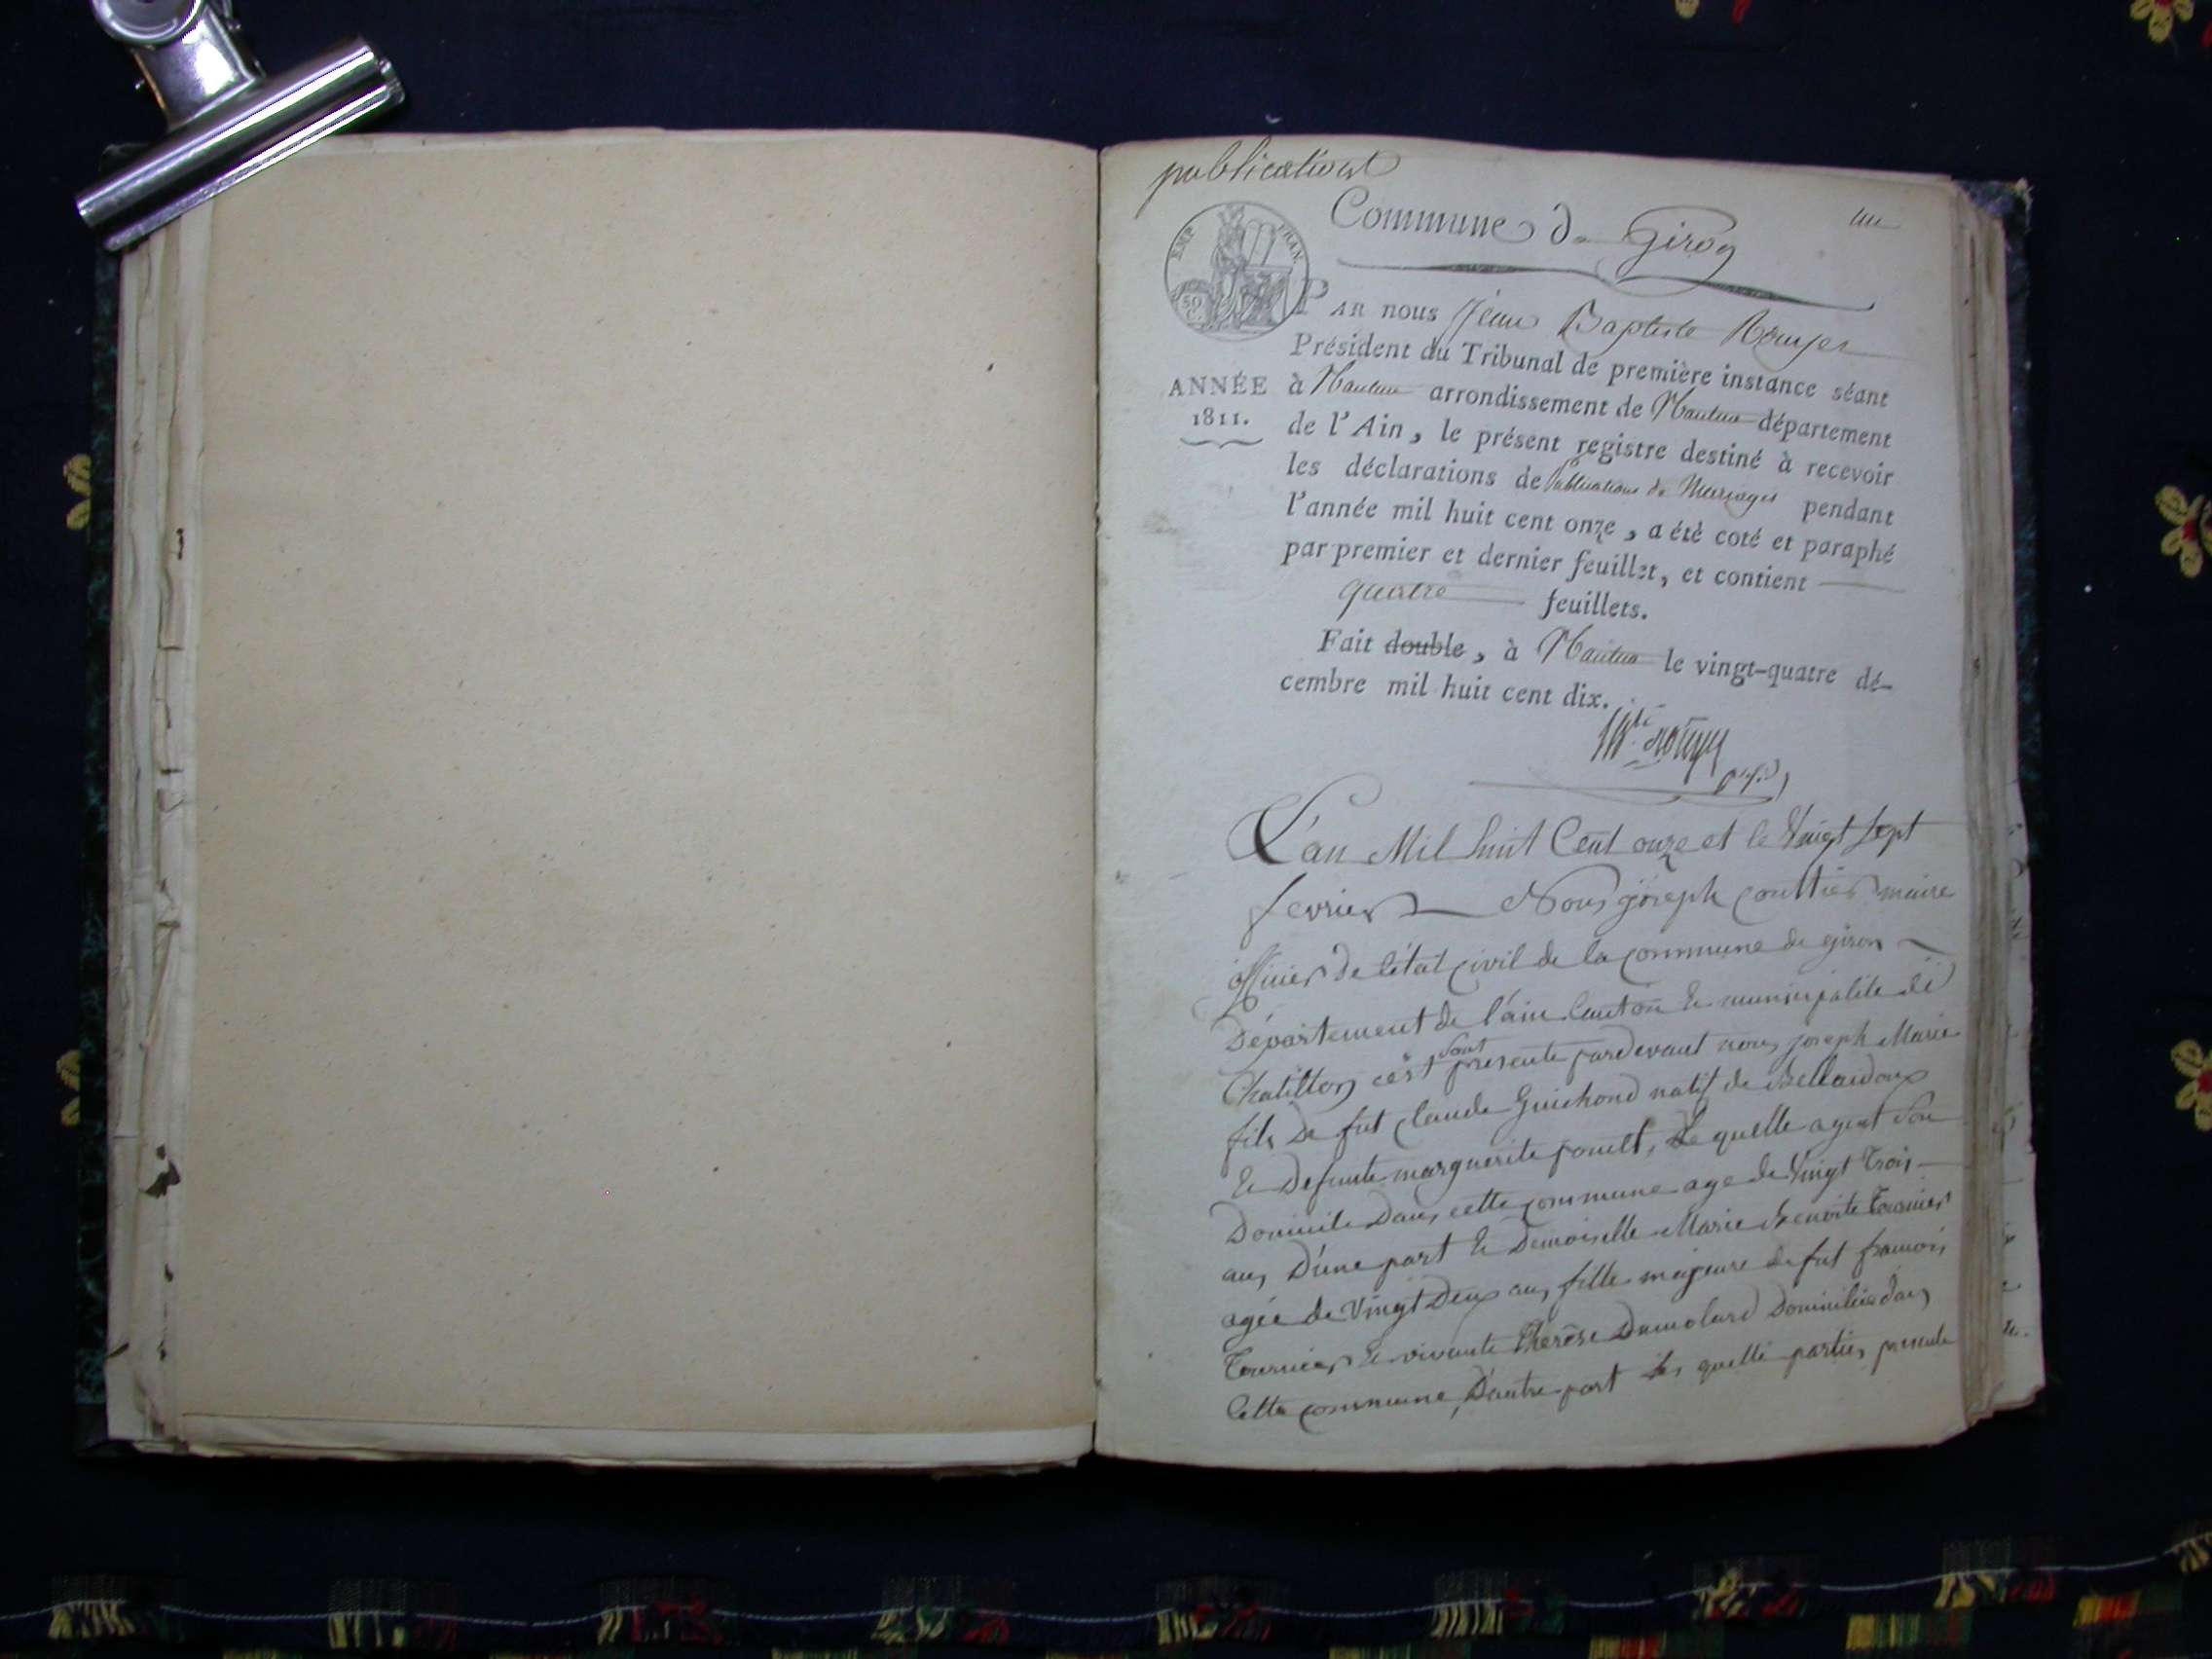 publications
Commune de Giron
un
EMP FRAN.
50 C.
PAR nous Jean Baptiste Rouyer
Président du Tribunal de première instance séant
ANNÉE 1811.
à Nantua arrondissement de Nantua département
de l'Ain, le présent registre destiné à recevoir
les déclarations de Publications de Mariages pendant
l'année mil huit cent onze, a été coté et paraphé
par premier et dernier feuillet, et contient
quatre feuillets.
Fait double, à Nantua le vingt-quatre dé-
cembre mil huit cent dix.
L'an Mil huit Cent onze et le Vingt Sept
fevrier Nous joseph Maire
officier de l'état civil de la commune de giron
Département de l'ain Canton de municipalite de
Chatillon c'est sont presente pardevant nous joseph Marie
fils De fut Claude Guichond natif de Bellaidoux
Et Defunte marguerite , Le quelle ayant son
Domicile Dans cette commune age de Vingt Trois
ans, D'une part Et Demoiselle Marie Benoite Tournier
agée de Vingt Deux ans, fille majeure de fut francois
Tournier Et vivante Therèse Dumolard Domiciliée dans
Cette commune, D'autre part Les quelle parties presente